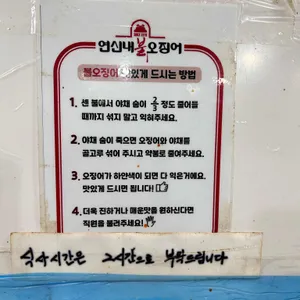 연신내불오징어
불오징어 맛있게 드시는 방법
1. 센 불에서 야채 숨이 2/3 정도 줄어들
때까지 섞지 말고 익혀주세요.
2. 야채 숨이 죽으면 오징어와 야채를
골고루 섞어 주시고 약불로 줄여주세요.
3. 오징어가 하얀색이 되면 다 익은거에요.
맛있게 드시면 됩니다!
4. 더욱 진하거나 매운맛을 원하신다면
직원을 불러주세요!
식사시간은 2시간으로 부탁드립니다